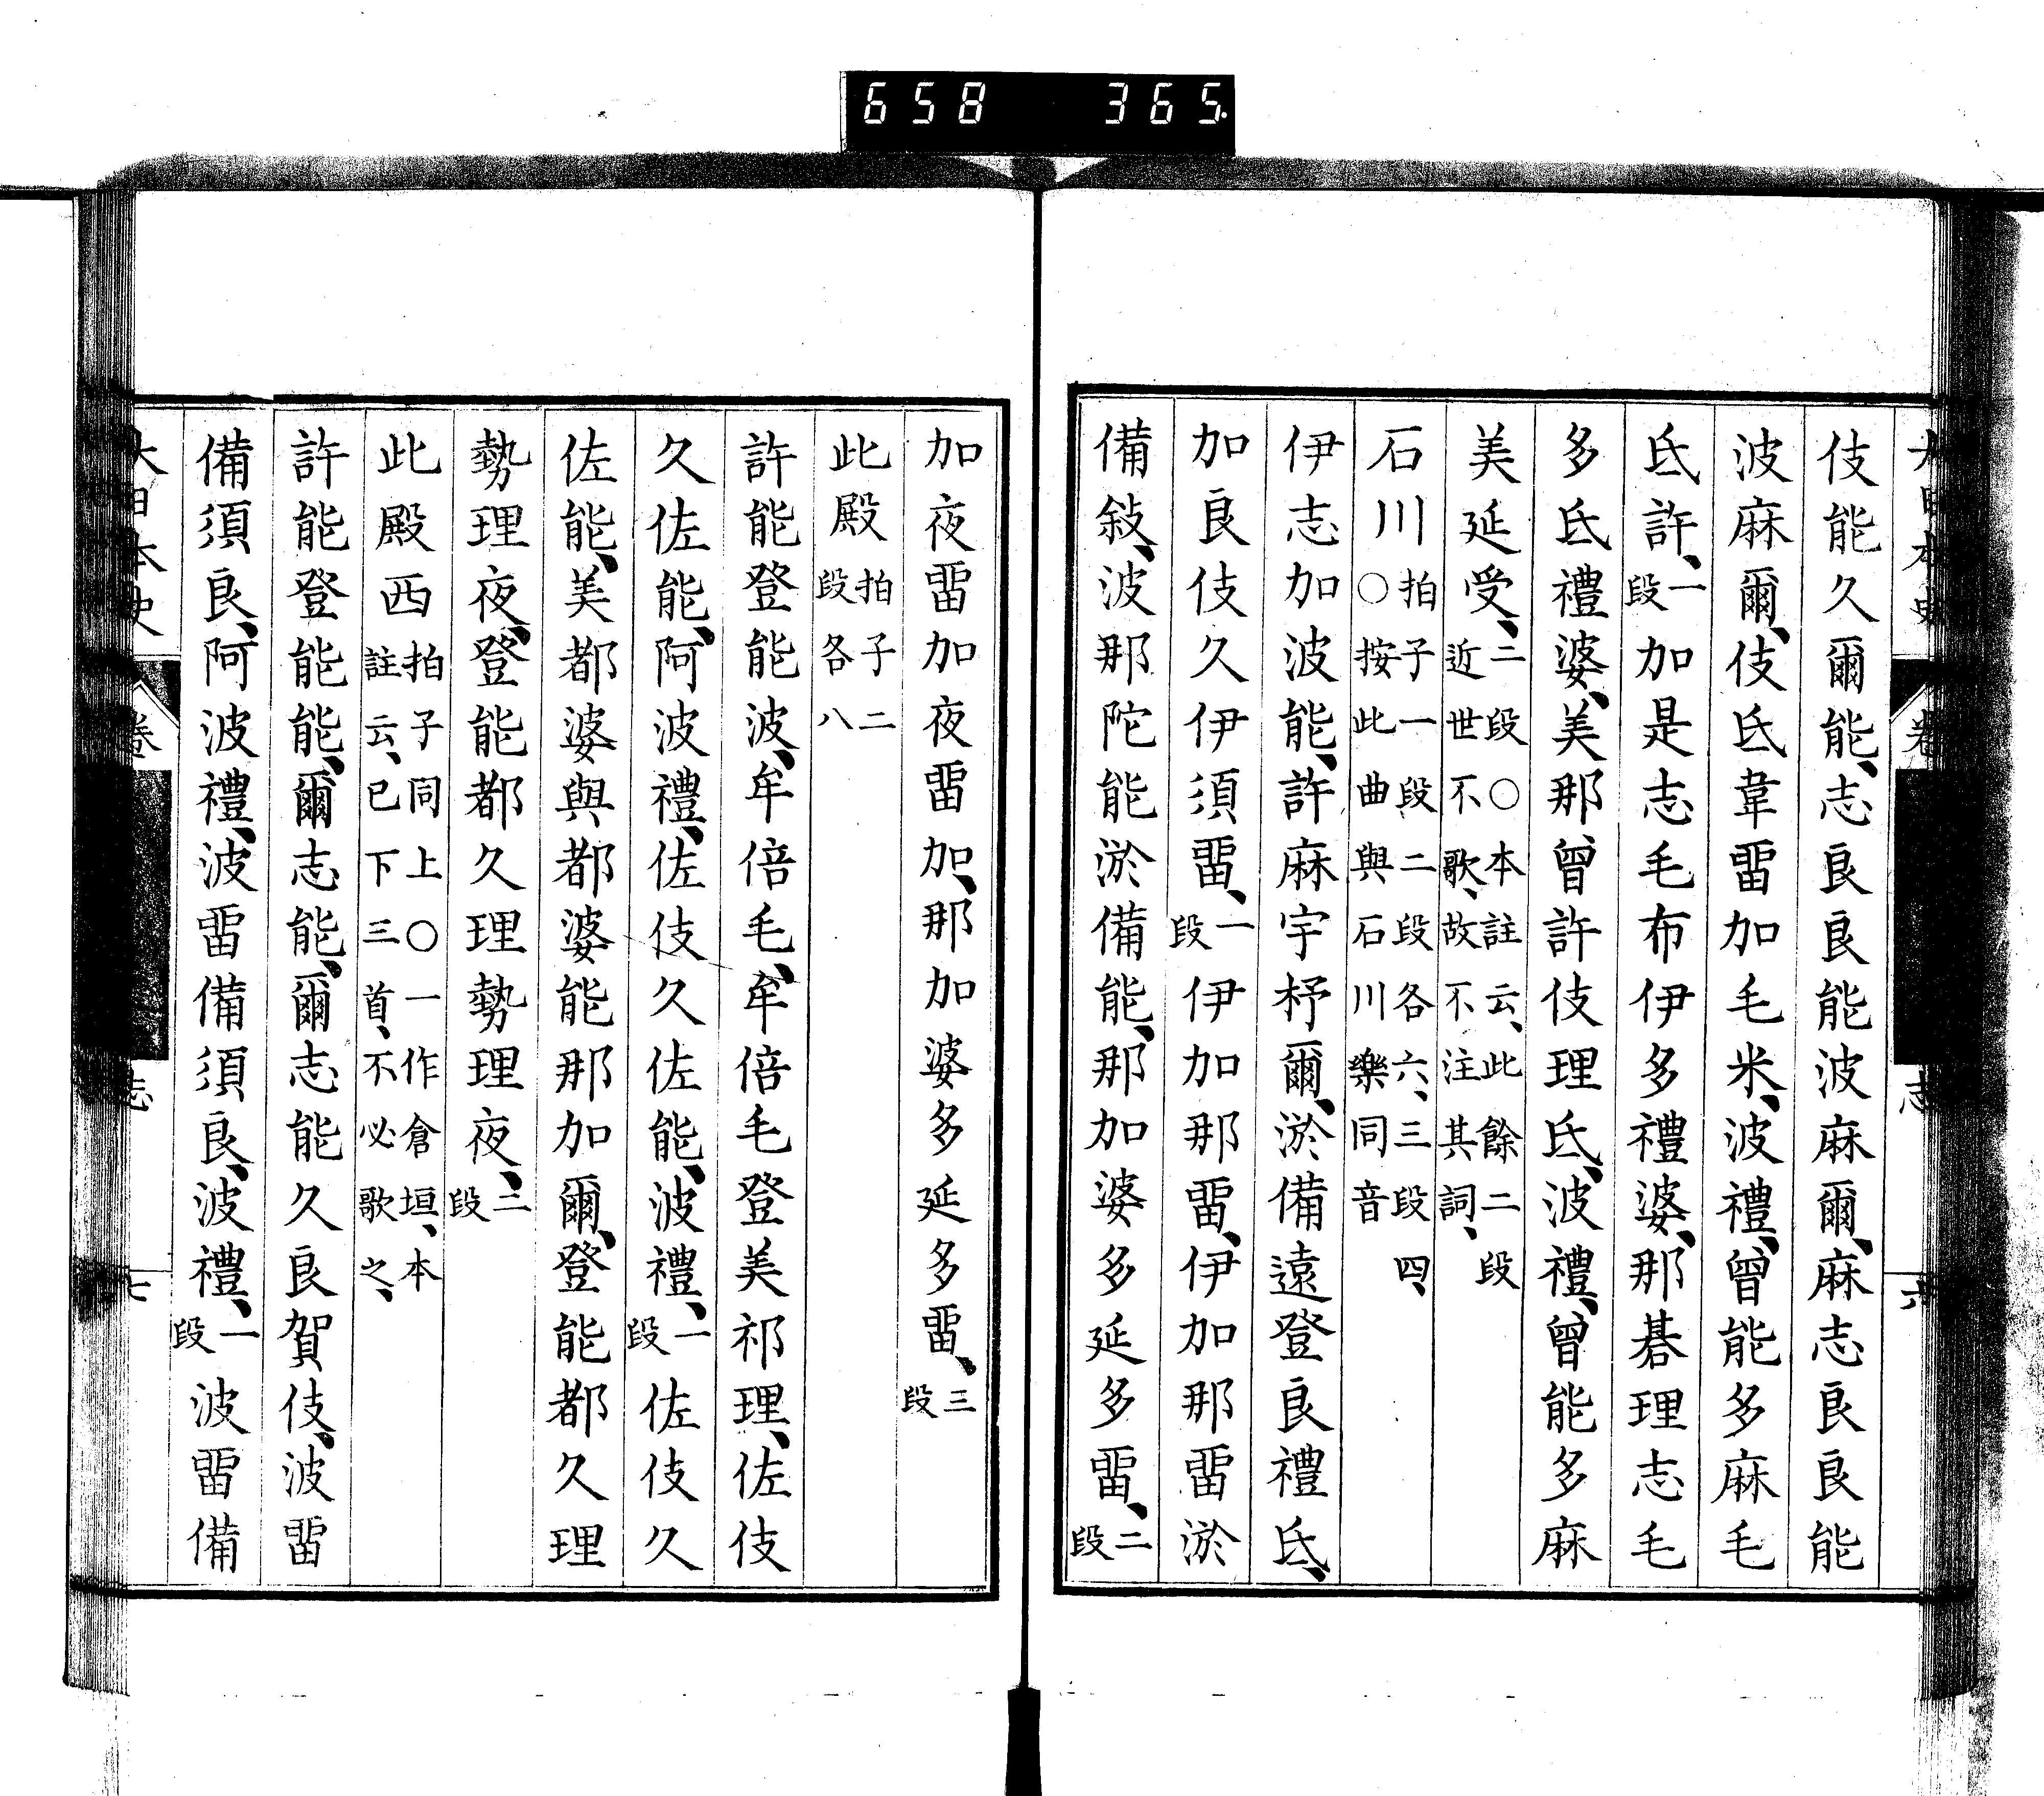 658 365
大日本史 卷 志 六
伎能久爾能、志良良能波麻爾、麻志良良能
波麻爾、伎氐韋畱加毛米、波禮、曾能多麻毛
氐許、一段加是志毛布伊多禮婆、那碁理志毛
多氐禮婆、美那曾許伎理氐、波禮、曾能多麻
美延受、二段○本註云、此餘二段近世不歌、故不注其詞、
石川拍子一段二段各六、三段四、○按此曲與石川樂同音
伊志加波能、許麻宇杼爾、淤備遠登良禮氐、
加良伎久伊須畱、一段伊加那畱、伊加那畱淤
備敍、波那陀能淤備能、那加婆多延多畱、二段
加夜畱加夜畱加、那加婆多延多畱、三段
此殿拍子二段各八
許能登能波、牟倍毛、牟倍毛登美祁理、佐伎
久佐能、阿波禮、佐伎久佐能、波禮、一段佐伎久
佐能、美都婆與都婆能那加爾、登能都久理
勢理夜、登能都久理勢理夜、二段
此殿西拍子同上○一作倉垣、本註云、已下三首、不必歌之、
許能登能能、爾志能、爾志能久良賀伎、波畱
備須良、阿波禮、波畱備須良、波禮、一段波畱備
大日本史 卷 志 七